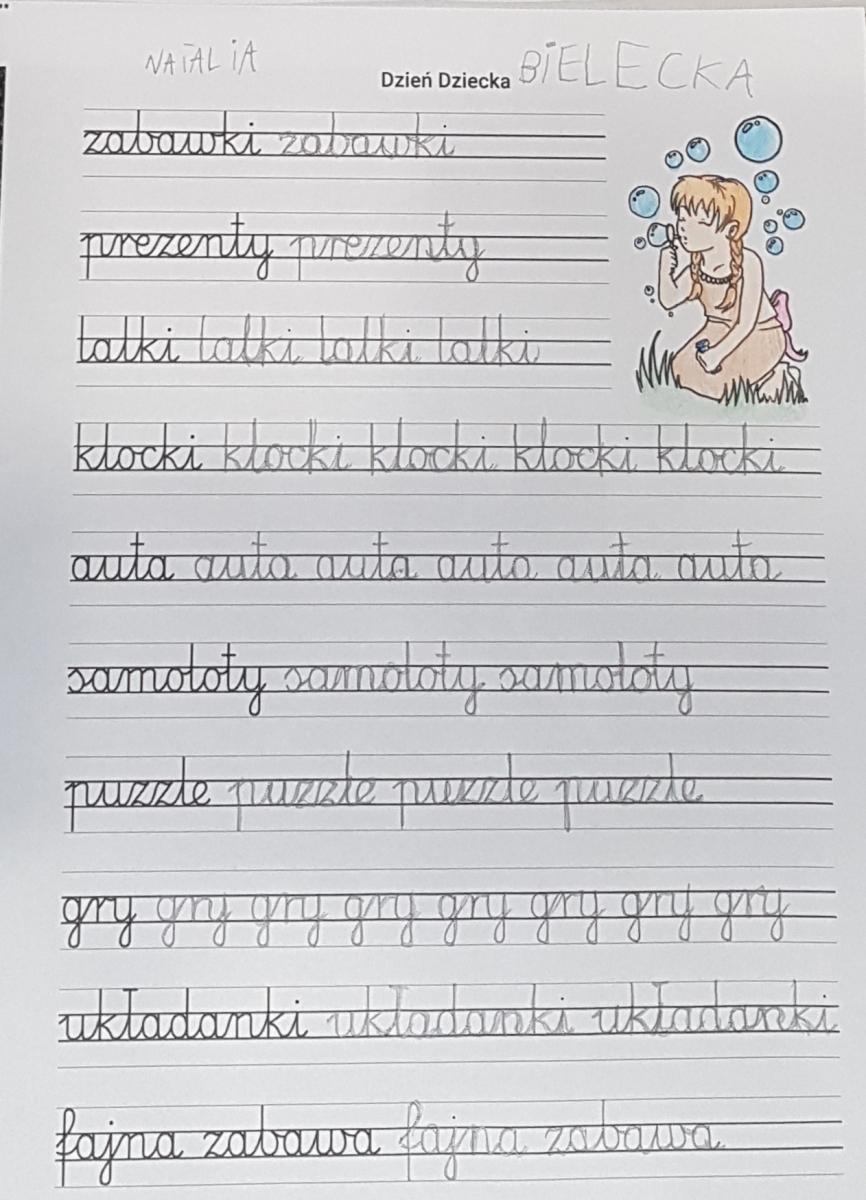 NATALIA Dzień Dziecka BIELECKA
zabawki zabawki
prezenty prezenty
lalki lalki lalki lalki
klocki klocki klocki klocki klocki
auta auta auta auta auta auta
samoloty samoloty samoloty
puzzle puzzle puzzle puzzle
gry gry gry gry gry gry gry gry
układanki układanki układanki
fajna zabawa fajna zabawa